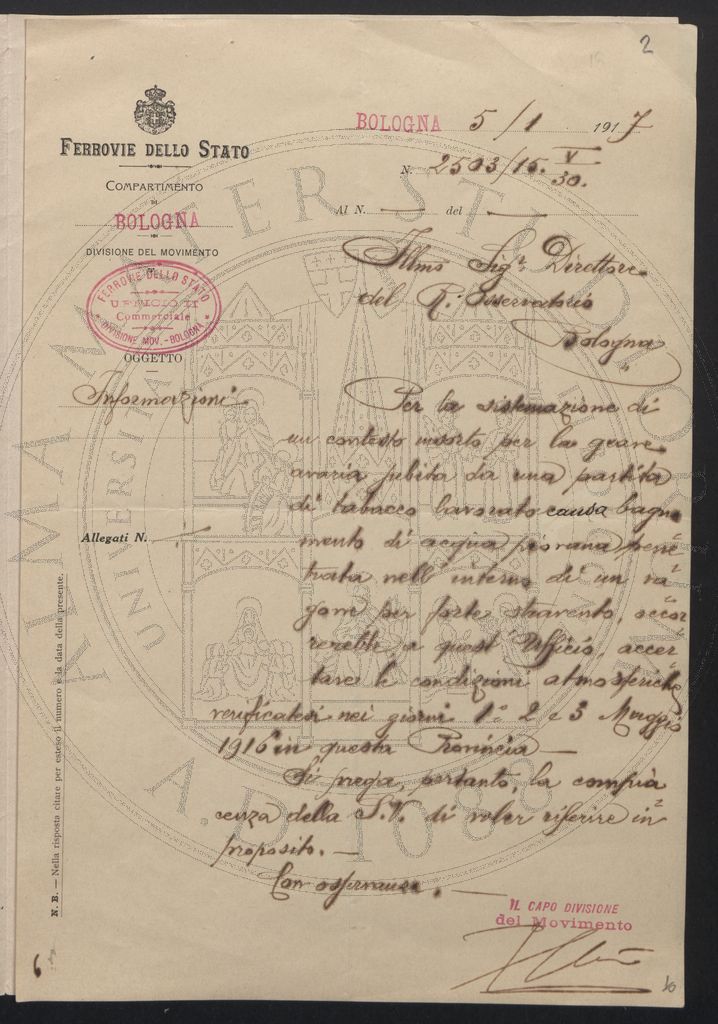 2
BOLOGNA 5/1 1917
FERROVIE DELLO STATO
N. 2503/15. V/30.
COMPARTIMENTO
DI
BOLOGNA
Al N. — del —
DIVISIONE DEL MOVIMENTO
FERROVIE DELLO STATO
UFFICIO II
Commerciale
DIVISIONE MOV. - BOLOGNA
Illmo Sigr. Direttore
del R. Osservatorio
Bologna
OGGETTO
Informazioni
Per la sistemazione di
un contesto insorto per la grave
avaria subita da una partita
di tabacco lavorato causa bagna
Allegati N. —
mento di acqua piovana pene=
trata nell'interno di un va=
gone per forte stravento, occor=
rerebbe a quest'Ufficio, accer=
tare le condizioni atmosferiche
verificatesi nei giorni 1° 2 e 3 Maggio
1916 in questa Provincia —
Si prega, pertanto, la compia
cenza della S.V. di voler riferire in
proposito. —
Con osservanza. —
IL CAPO DIVISIONE
del Movimento
N. B. — Nella risposta citare per esteso il numero e la data della presente.
6
ALMA MATER STUDIORUM
UNIVERSITÀ
A.D. 1088